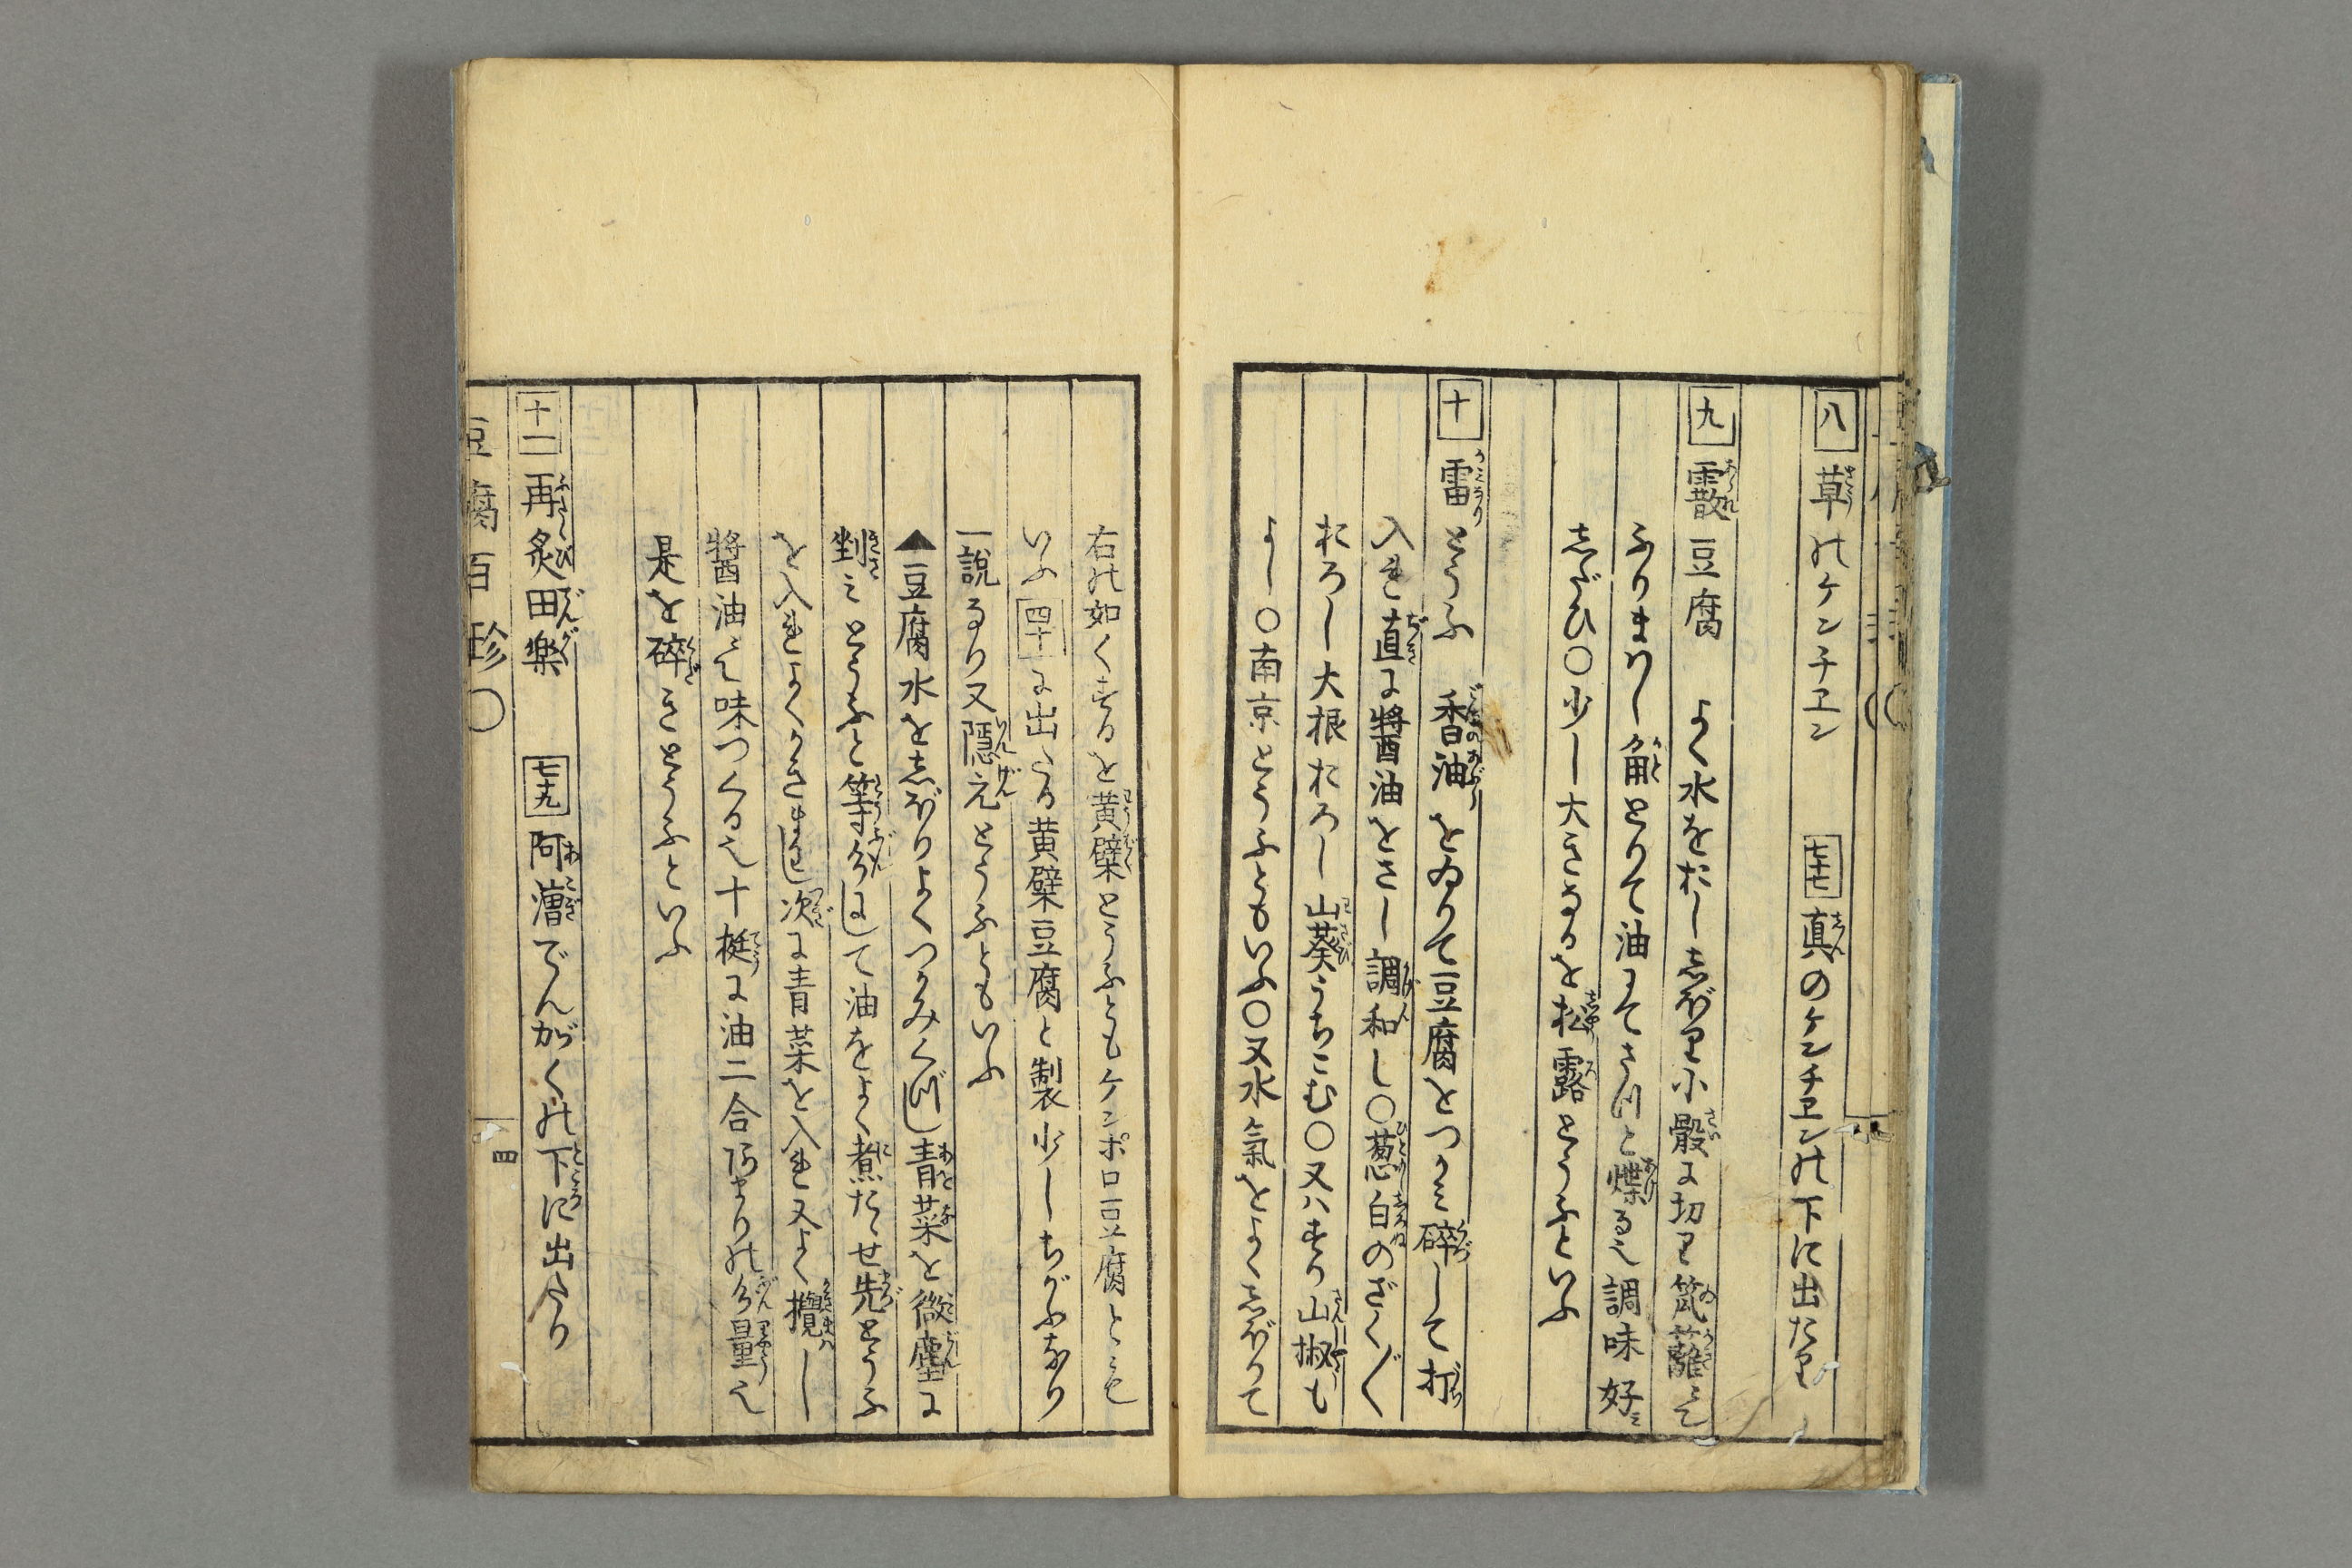 八 草のケンチヱン 七十七 真のケンチヱンの下に出たり
九 霰豆腐 よく水をおししぼり小骰に切り笊籬にて
ふりまわし角とりて油にてさつと煠る也調味好み
しだひ〇少し大きなるを松露とうふといふ
十 雷とうふ 香油をゐりて豆腐をつかみ碎して打
入れ直に醤油をさし調和し〇葱白のざく〳〵
おろし大根おろし山葵うちこむ〇又ハすり山椒も
よし〇南京とうふともいふ〇又水氣をよくしぼりて
右の如くするを黄檗とうふともケンポロ豆腐ともと
いふ 四十 に出たる黄檗豆腐と製少しちがふあり
一説なり又隠元とうふともいふ
▲豆腐水をしぼりよくつかみくづし青菜を微塵に
剉ミとうふと等分にして油をよく煮たゝせ先とうふ
を入れよくかきまわし次に青菜を入れ又よく攪し
醤油にて味つくる也十挺に油二合あまりの分量也
是を碎きとうふといふ
十一 再炙田楽 七十九 阿漕でんがくの下に出たり
豆腐百珍〇
四